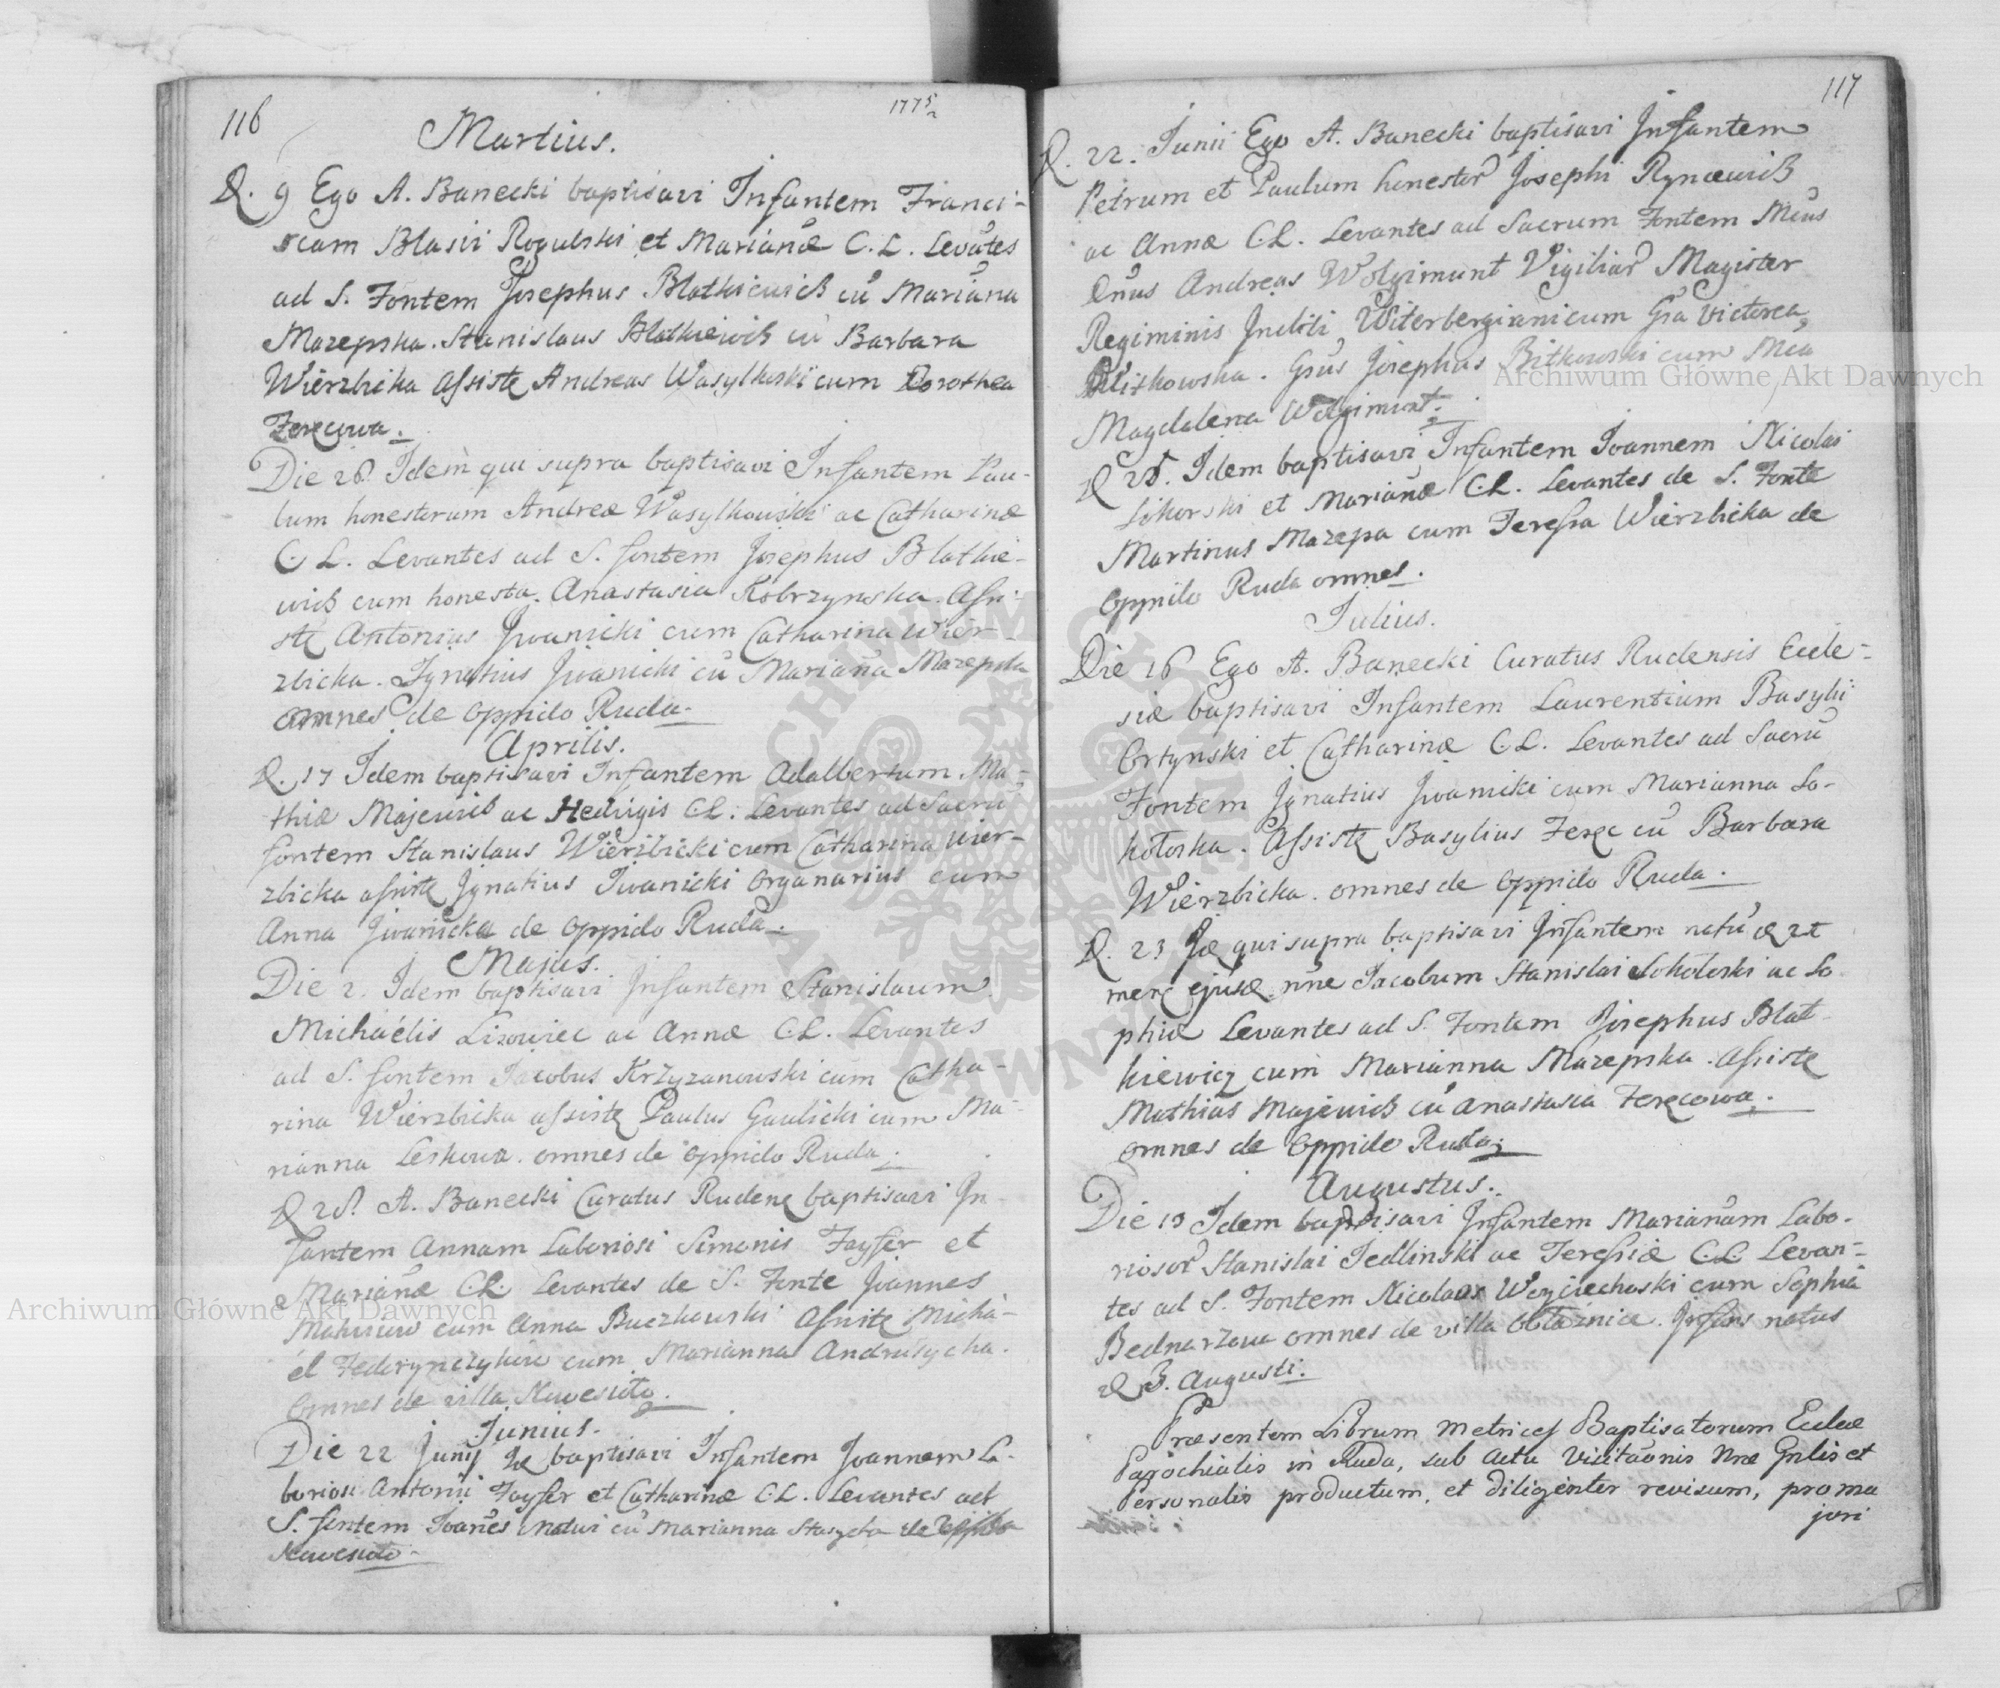 116
1775
Martius.
D. 9 Ego A. Banecki baptisavi Infantem Franci-
scam Blasii Rogulski et Marianæ C. L. Levātes
ad S. Fontem Josephus Blatkiewicz cū Mariana
Mazepska. Stanislaus Blatkiewicz cū Barbara
Wierzbicka Assiste Andreas Wasylkoski cum Dorothea
Ferecowa.
Die 28. Idem qui supra baptisavi Infantem Pau-
lum honestorum Andreæ Wasylkowski ac Catharinæ
C. L. Levantes ad S. fontem Josephus Blatkie-
wicz cum honesta Anastasia Kobrzynska. Assi-
ste Antonius Jwanicki cum Catharina Wier-
zbicka. Ignatius Jwanicki cū Mariana Mazepska
omnes de oppido Ruda.
Aprilis.
D. 17 Idem baptisavi Infantem Adalbertum Ma-
thiæ Majewicz ac Hedvigis C.L. Levantes ad Sacrū
fontem Stanislaus Wierzbicki cum Catharina Wier-
zbicka assiste Jgnatius Iwanicki Organarius cum
Anna Jwanicka de oppido Ruda.
Majus.
Die 2. Idem baptisavi Jnfantem Stanislaum
Michaélis Lizowiec ac Annæ C.L. Levantes
ad S. fontem Jacobus Krzyzanowski cum Catha-
rina Wierzbicka assiste Paulus Gaulicki cum Ma-
rianna Leskowa. omnes de oppido Ruda.
D 28. A. Banecki Curatus Rudene baptisavi Jn-
fantem Annam Laboriosi Simonis Fayfer et
Marianæ C.L. Levantes de S. Fonte Joannes
cum Anna Buczkowski Assiste Micha-
él cum Marianna Andrusycha.
Omnes de villa
Junius.
Die 22 Junij baptisavi Infantem Joannem La-
boriosi Antonii Fayfer et Catharinæ C.L. Levantes ad
S. fontem Ioañes cū Marianna
117
D. 22. Junii Ego A. Banecki baptisavi Jnfantem
Petrum et Paulum honestor Josephi
ac Annæ C.L. Levantes ad Sacrum Fontem
Dñus Andreas Wolgimunt Vigiliar Magister
Regiminis Jncliti Witerbergianicum Gsa Victorea
Bitkowska. Gsus Josephus Bitkowski cum Mca
Magdalena Wolgimunt.
D 28. Idem baptisavi Infantem Ioannem Nicolai
Sikorski et Marianæ C.L. Levantes de S. Fonte
Martinus Mazepa cum Teressa Wierzbicka de
Oppido Ruda omnes.
Julius.
Die 16 Ego A. Banecki Curatus Rudensis Eccle-
siæ baptisavi Infantem Laurentium Basyli
Ortynski et Catharinæ C.L. Levantes ad Sacrū
Fontem Jgnatius Jwanicki cum Marianna So-
kołoska. Assiste Basylius Ferec cū Barbara
Wierzbicka. omnes de oppido Ruda.
D. 23 qui supra baptisavi Jnfantem natū
Jacobum Stanislai Sokołoski ac So-
phiæ Levantes ad S. Fontem Josephus Blat-
kiewicz cum Marianna Mazepska. Assiste
Mathias Majewicz cū Anastasia Ferecowa.
omnes de Oppido Ruda.
Augustus.
Die 13 Idem baptisavi Jnfantem Marianam Labo-
riosor Stanislai Jedlinski ac Teressiæ C.L. Levan-
tes ad S. Fontem Nicolaus Woyciechoski cum Sophia
Bednarzowa omnes de villa Jnfans natus
D 3. Augusti.
Præsentem Librum Metrices Baptisatorum Eccłæ
Parochialis in Ruda, sub Actu Visitāonis Nræ Gnlis et
Personalis productum, et diligenter revisum, pro ma
jori